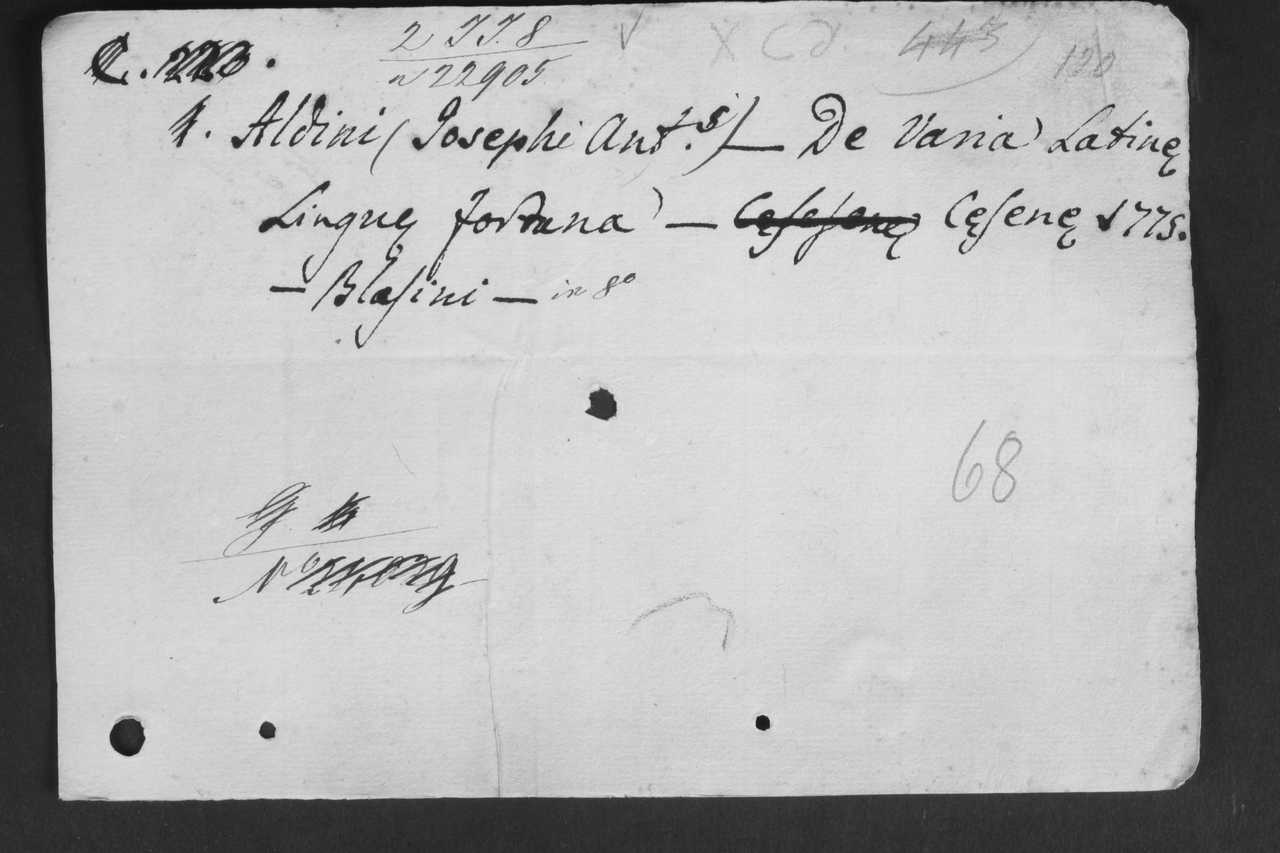 2 II. 8
n 22905
X Cd. 443 120
1. Aldini (Josephi Ant.s) — De Varia Latinę
Linguę fortuna — Cęsesenę Cęsenę 1775.
— Blasini — in 8o
68
G
No